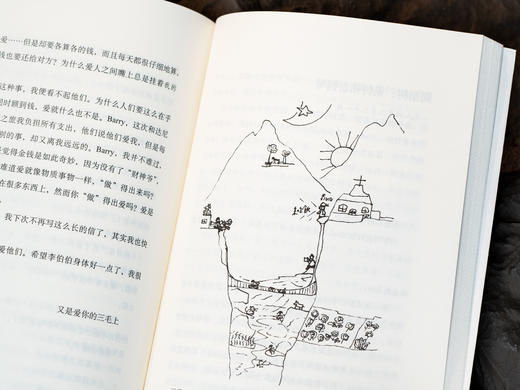 爱……但是却要各算各的钱，而且每天都很仔细地算，
钱也要还给对方？为什么爱人之间嘴上总是挂着
这种事，我便看不起他们。为什么人们要这么在乎
同时顾到钱，爱就什么也不是。Barry，这次和达尼
之旅我负担所有支出，他们说他们爱我，但是每
别的事，却又离我远远的。Barry，我并不难过，
觉得金钱是如此奇妙，因为没有了“财神爷”，
难道爱就像物质事物一样，“做”得出来吗？
在很多东西上，然而你“做”得出爱吗？爱是
我下次不再写这么长的信了，其实我也快
爱他们。希望李伯伯身体好一点了，我很
又是爱你的三毛上